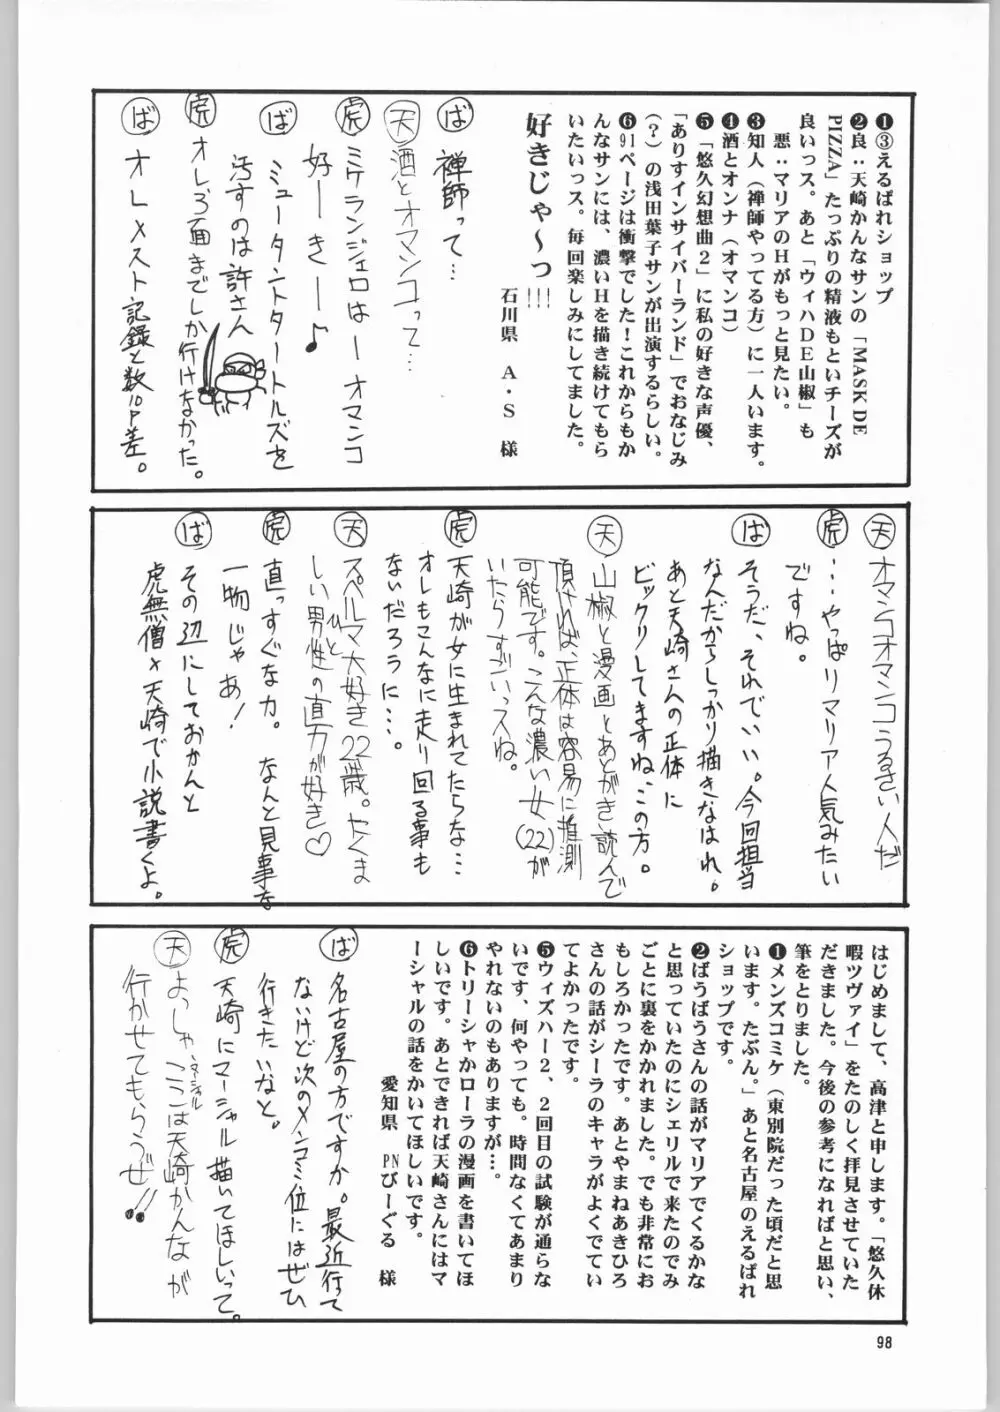 ❶③えるぱれショップ
❷良：天崎かんなサンの「MASK DE
PIZZA」たっぷりの精液もといチーズが
良いっス。あと「ウィハDE山椒」も
悪：マリアのHがもっと見たい。
❸知人（禅師やってる方）に一人います。
❹酒とオンナ（オマンコ）
❺「悠久幻想曲2」に私の好きな声優、
「ありすインサイバーランド」でおなじみ
（？）の浅田葉子サンが出演するらしい。
❻91ページは衝撃でした！これからもか
んなサンには、濃いHを描き続けてもら
いたいっス。毎回楽しみにしてました。
好きじゃ〜っ!!!
石川県　A・S　様
ば 禅師って…
天 酒とオマンコって…
虎 ミケランジェロはーオマンコ
好ーーきーー♪
ば ミュータントタートルズを
汚すのは許さん
虎 オレ3面までしか行けなかった。
ば オレメスト記録と数10P差。
天 オマンコオマンコうるさい人だ
虎 …やっぱりマリア人気みたい
ですね。
ば そうだ、それでいい。今回担当
なんだからしっかり描きなはれ。
あと天崎さんの正体に
ビックリしてますね、この方。
天 山椒と漫画とあとがき読んで
頂ければ、正体は容易に推測
可能です。こんな濃い女(22)が
いたらすごいっスね。
虎 天崎が女に生まれてたらな…
オレもこんなに走り回る事も
ないだろうに…。
天 スペルマ大好き22歳。たくま
しい男性の直力が好き♡
ひと
虎 直っすぐな力。なんと見事な
一物じゃあ！
ば その辺にしておかんと
虎無僧×天崎で小説書くよ。
はじめまして、高津と申します。「悠久休
暇ツヴァイ」をたのしく拝見させていた
だきました。今後の参考になればと思い、
筆をとりました。
❶メンズコミケ（東別院だった頃だと思
います。たぶん。」あと名古屋のえるぱれ
ショップです。
❷ばうばうさんの話がマリアでくるかな
と思っていたのにシェリルで来たのでみ
ごとに裏をかかれました。でも非常にお
もしろかったです。あとやまねあきひろ
さんの話がシーラのキャラがよくでてい
てよかったです。
❺ウィズハー2、2回目の試験が通らな
いです、何やっても。時間なくてあまり
やれないのもありますが…。
❻トリーシャかローラの漫画を書いてほ
しいです。あとできれば天崎さんにはマ
ーシャルの話をかいてほしいです。
愛知県　PNびーぐる　様
ば 名古屋の方ですか。最近行って
ないけど次のメンコミ位にはぜひ
行きたいなと。
虎 天崎にマーシャル描いてほしいって。
天 よっしゃ、ここは天崎かんなが
マーシャル
行かせてもらうぜ!!
98